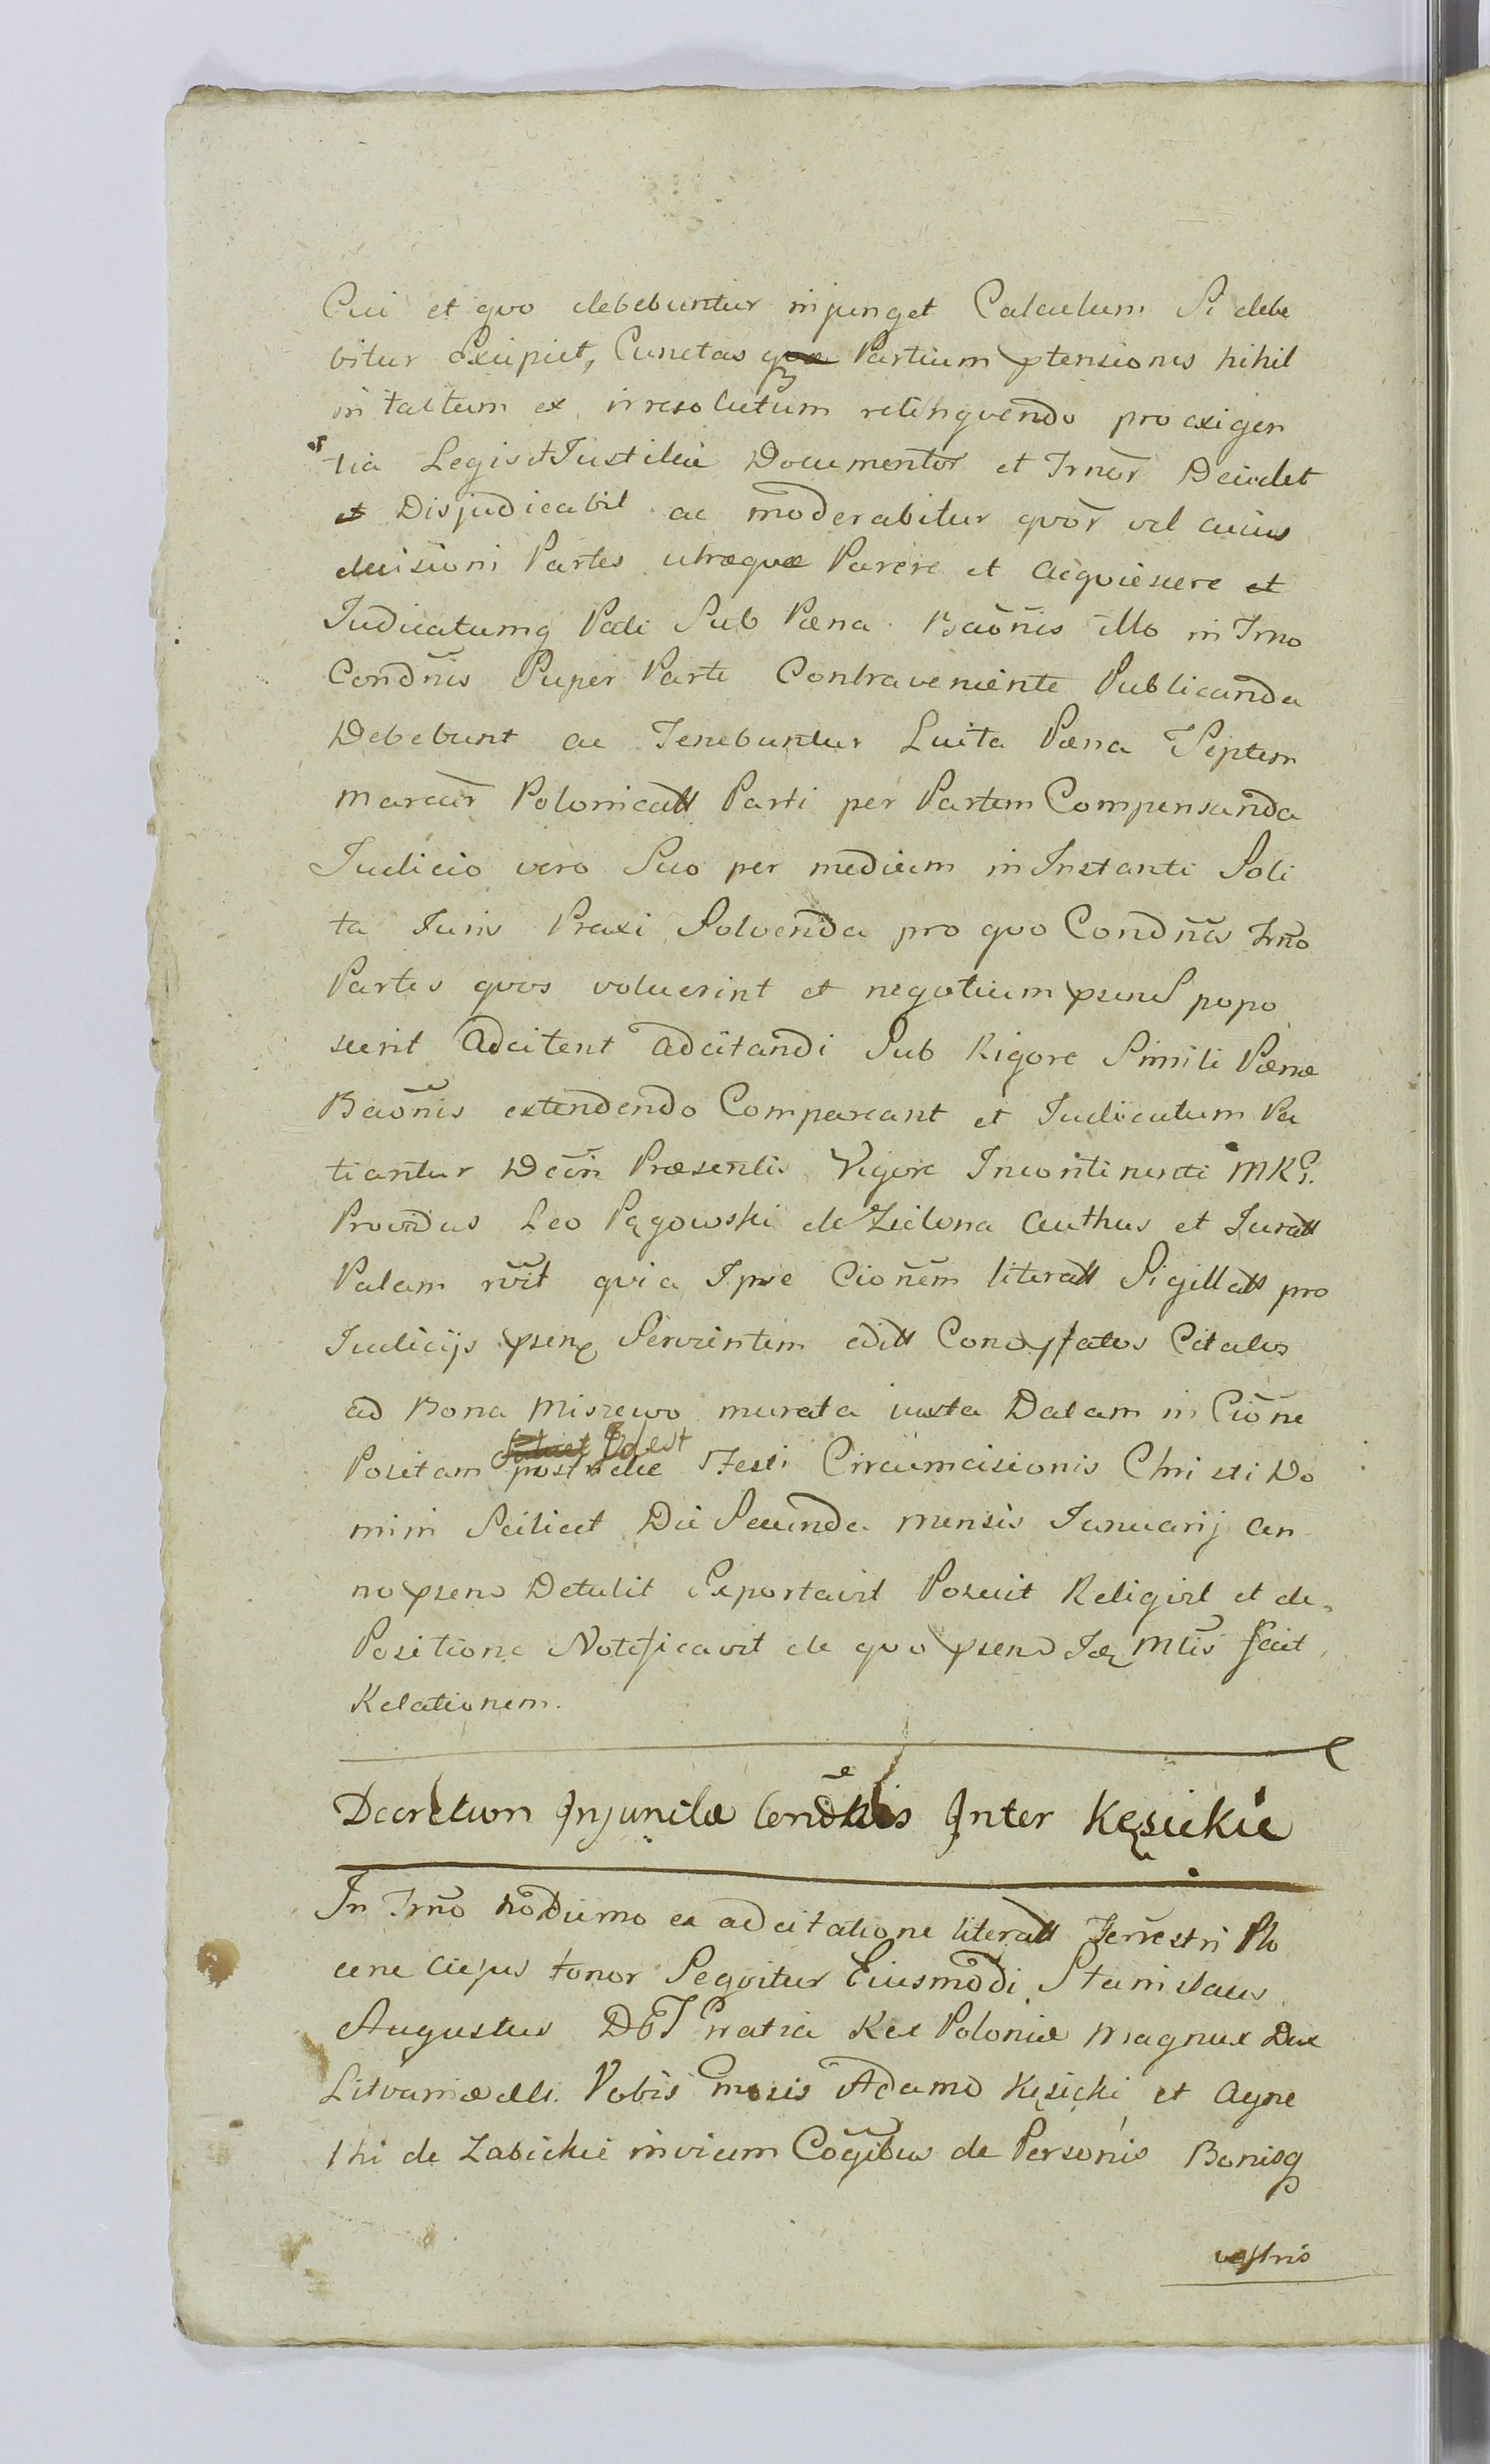 Cui et qvo debebuntur injunget Calculum Si debe
bitur Excipiet, Cunctas qve Partium ptensiones nihil
in tactum ex irresolutum relinqvendo pro exigen
tia Legis et Justitiæ Documentor et Trnor Decidet
et Disjudicabit ac moderabitur qvor vel cuius
decisioni Partes utræqvæ Parere et Acqviescere et
Judicatumq Pati Sub Pæna Baōnis illo in Trno
Condnis Super Parte Contraveniente Publicanda
Debebunt ac Tenebuntur Luita Pæna Septem
Marcar Polonicall Parti per Partem Compensanda
Judicio vero Suo per medium in Instanti Soli
ta Juris Praxi Solvenda pro qvo Condnis Trno
Partes qvos voluerint et negotium psens popo
scerit Adcitent adcitandi Sub Rigore Simili Pænæ
Baōnis extendendo Compareant et Judicatum Pa
tiantur Dcōn Præsentis Vigore Incontinenti MRG.
Providus Leo Pągowski de Zielona Authus et Jurall
Palam rvit qvia Ipse Cionem literall Sigillall pro
Judicijs psenq Servientem edill Conoptatos Citatos
ad Bona Miszewo murata iuxta Datam in Cione
Positam postridie Festi Circumcisionis Christi Do
mini Scilicet Die Secunda mensis Januarij an
no psen Detulit Exportavit Posuit Religit et de
Positione Notificavit de qvo psen Jæ Mtis fecit
Relationem.
Decretum Injunctæ Condnis Inter Kęsickie
In Trno hodierno ex adcitatione literall Terrestri Plo
cene Cujus tenor Seqvitur Eiusmodi Stanislaus
Augustus DEI Gratia Rex Poloniæ Magnus Dux
Litvaniæ etc. Vobis Gnosis Adamo Kęsicki et Agne
thi de Zabickie invicem Cogibus de Personis Bonisq
vestris